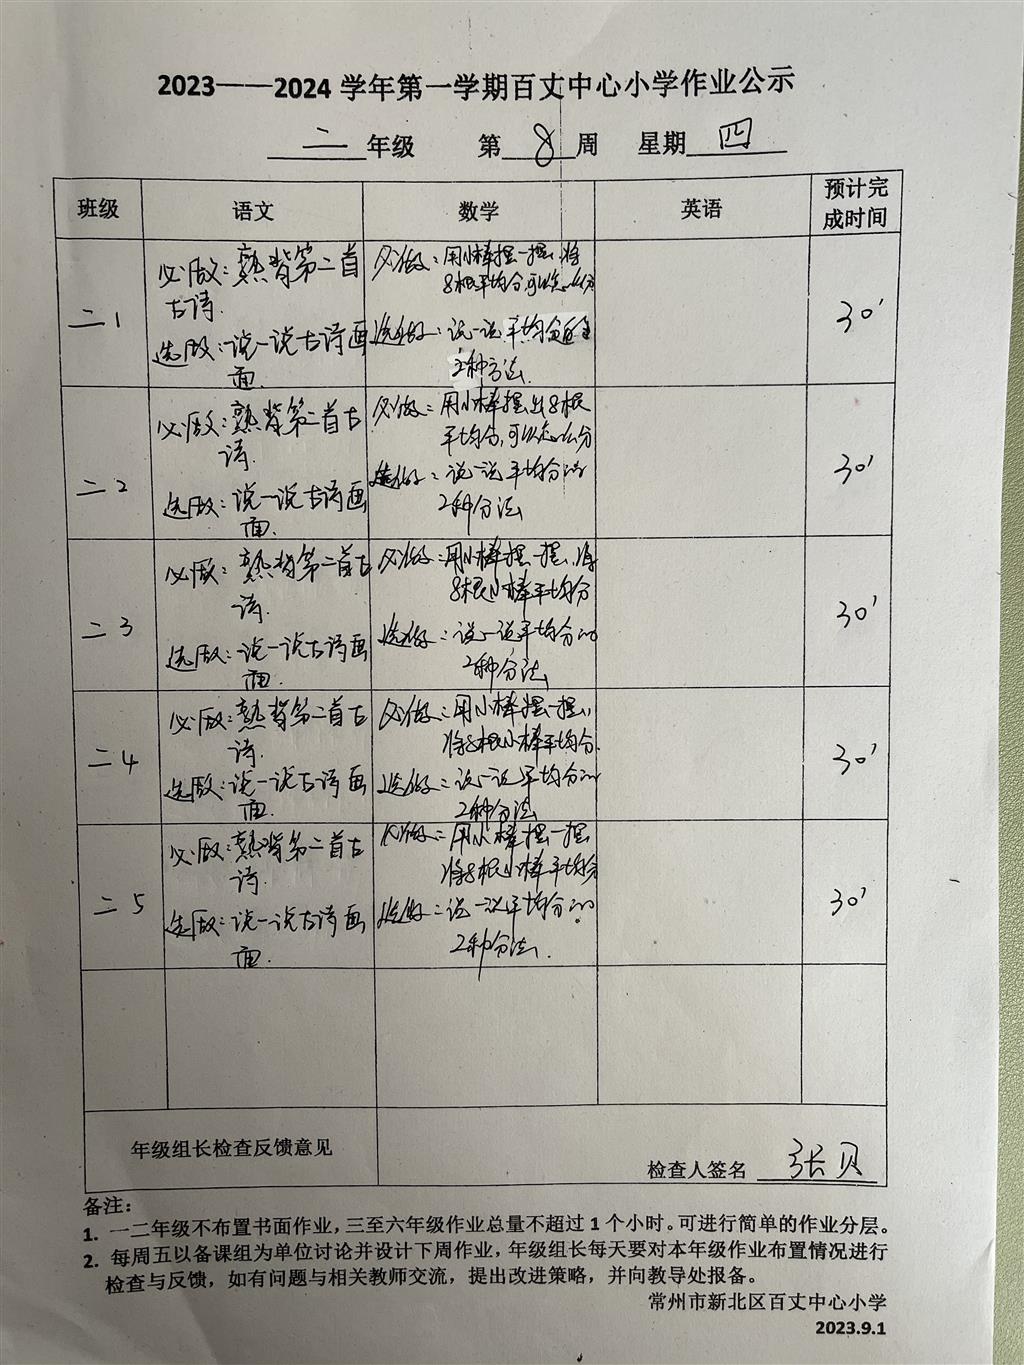 2023——2024 学年第一学期百丈中心小学作业公示
二 年级 第 8 周 星期 四
班级 语文 数学 英语 预计完
成时间
二1
必做：熟背第二首
古诗.
选做：说一说古诗画
面.
必做：用小棒摆一摆，将
8根平均分,可以怎么分
选做：说一说平均分的
2种方法.
30'
二2
必做：熟背第二首古
诗.
选做：说一说古诗画
面.
必做：用小棒摆出8根
平均分,可以怎么分
选做：说一说平均分的
2种分法
30'
二3
必做：熟背第二首古
诗.
选做：说一说古诗画
面.
必做：用小棒摆一摆,将
8根小棒平均分
选做：说一说平均分的
2种分法
30'
二4
必做：熟背第二首古
诗.
选做：说一说古诗画
面.
必做：用小棒摆一摆,
将8根小棒平均分.
选做：说一说平均分的
2种分法
30'
二5
必做：熟背第二首古
诗.
选做：说一说古诗画
面.
必做：用小棒摆一摆
将8根小棒平均分
选做：说一说平均分的
2种分法.
30'
年级组长检查反馈意见
检查人签名 张贝
备注：
1. 一二年级不布置书面作业，三至六年级作业总量不超过 1 个小时。可进行简单的作业分层。
2. 每周五以备课组为单位讨论并设计下周作业，年级组长每天要对本年级作业布置情况进行
检查与反馈，如有问题与相关教师交流，提出改进策略，并向教导处报备。
常州市新北区百丈中心小学
2023.9.1